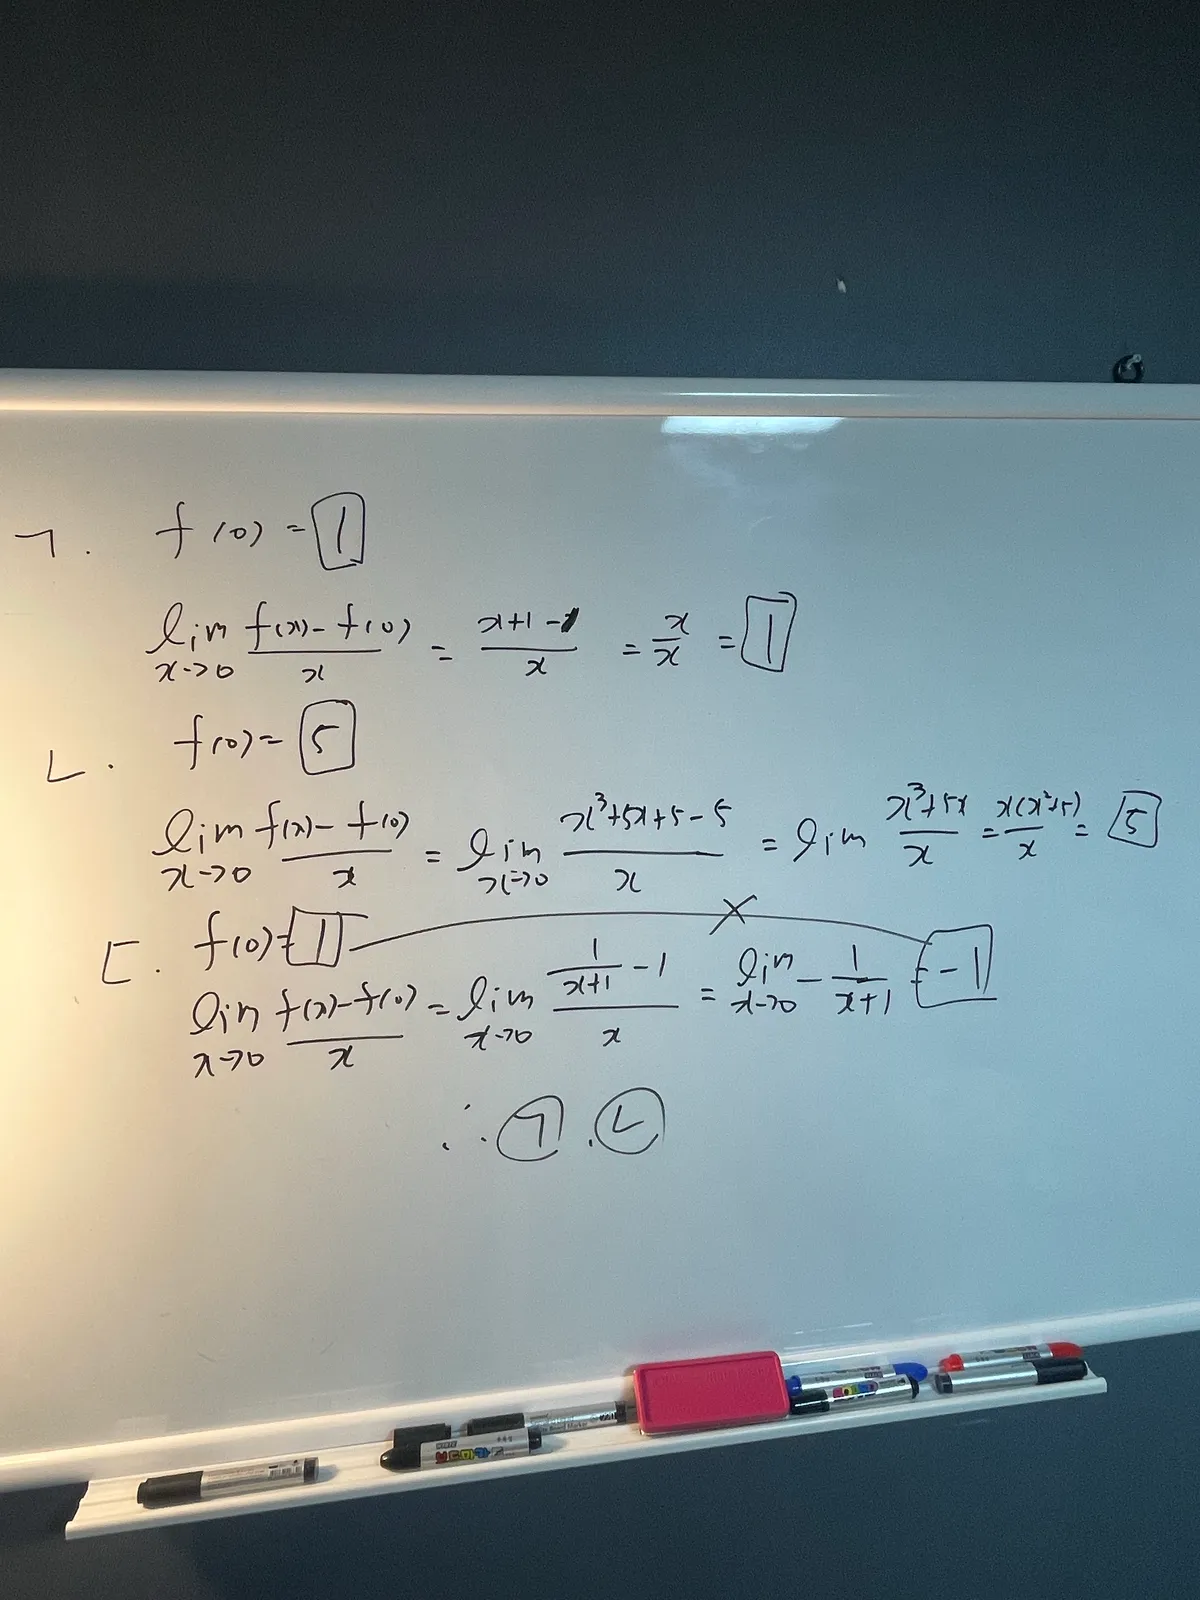 ㄱ. f(0) = 1
lim x→0 (f(x) - f(0))/x = (x+1-1)/x = x/x = 1
ㄴ. f(0) = 5
lim x→0 (f(x) - f(0))/x = lim x→0 (x³+5x+5-5)/x = lim (x³+5x)/x = x(x²+5)/x = 5
ㄷ. f(0) = 1 × 
lim x→0 (f(x)-f(0))/x = lim x→0 (1/(x+1) - 1)/x = lim x→0 - 1/(x+1) = -1
∴ ㄱ, ㄴ